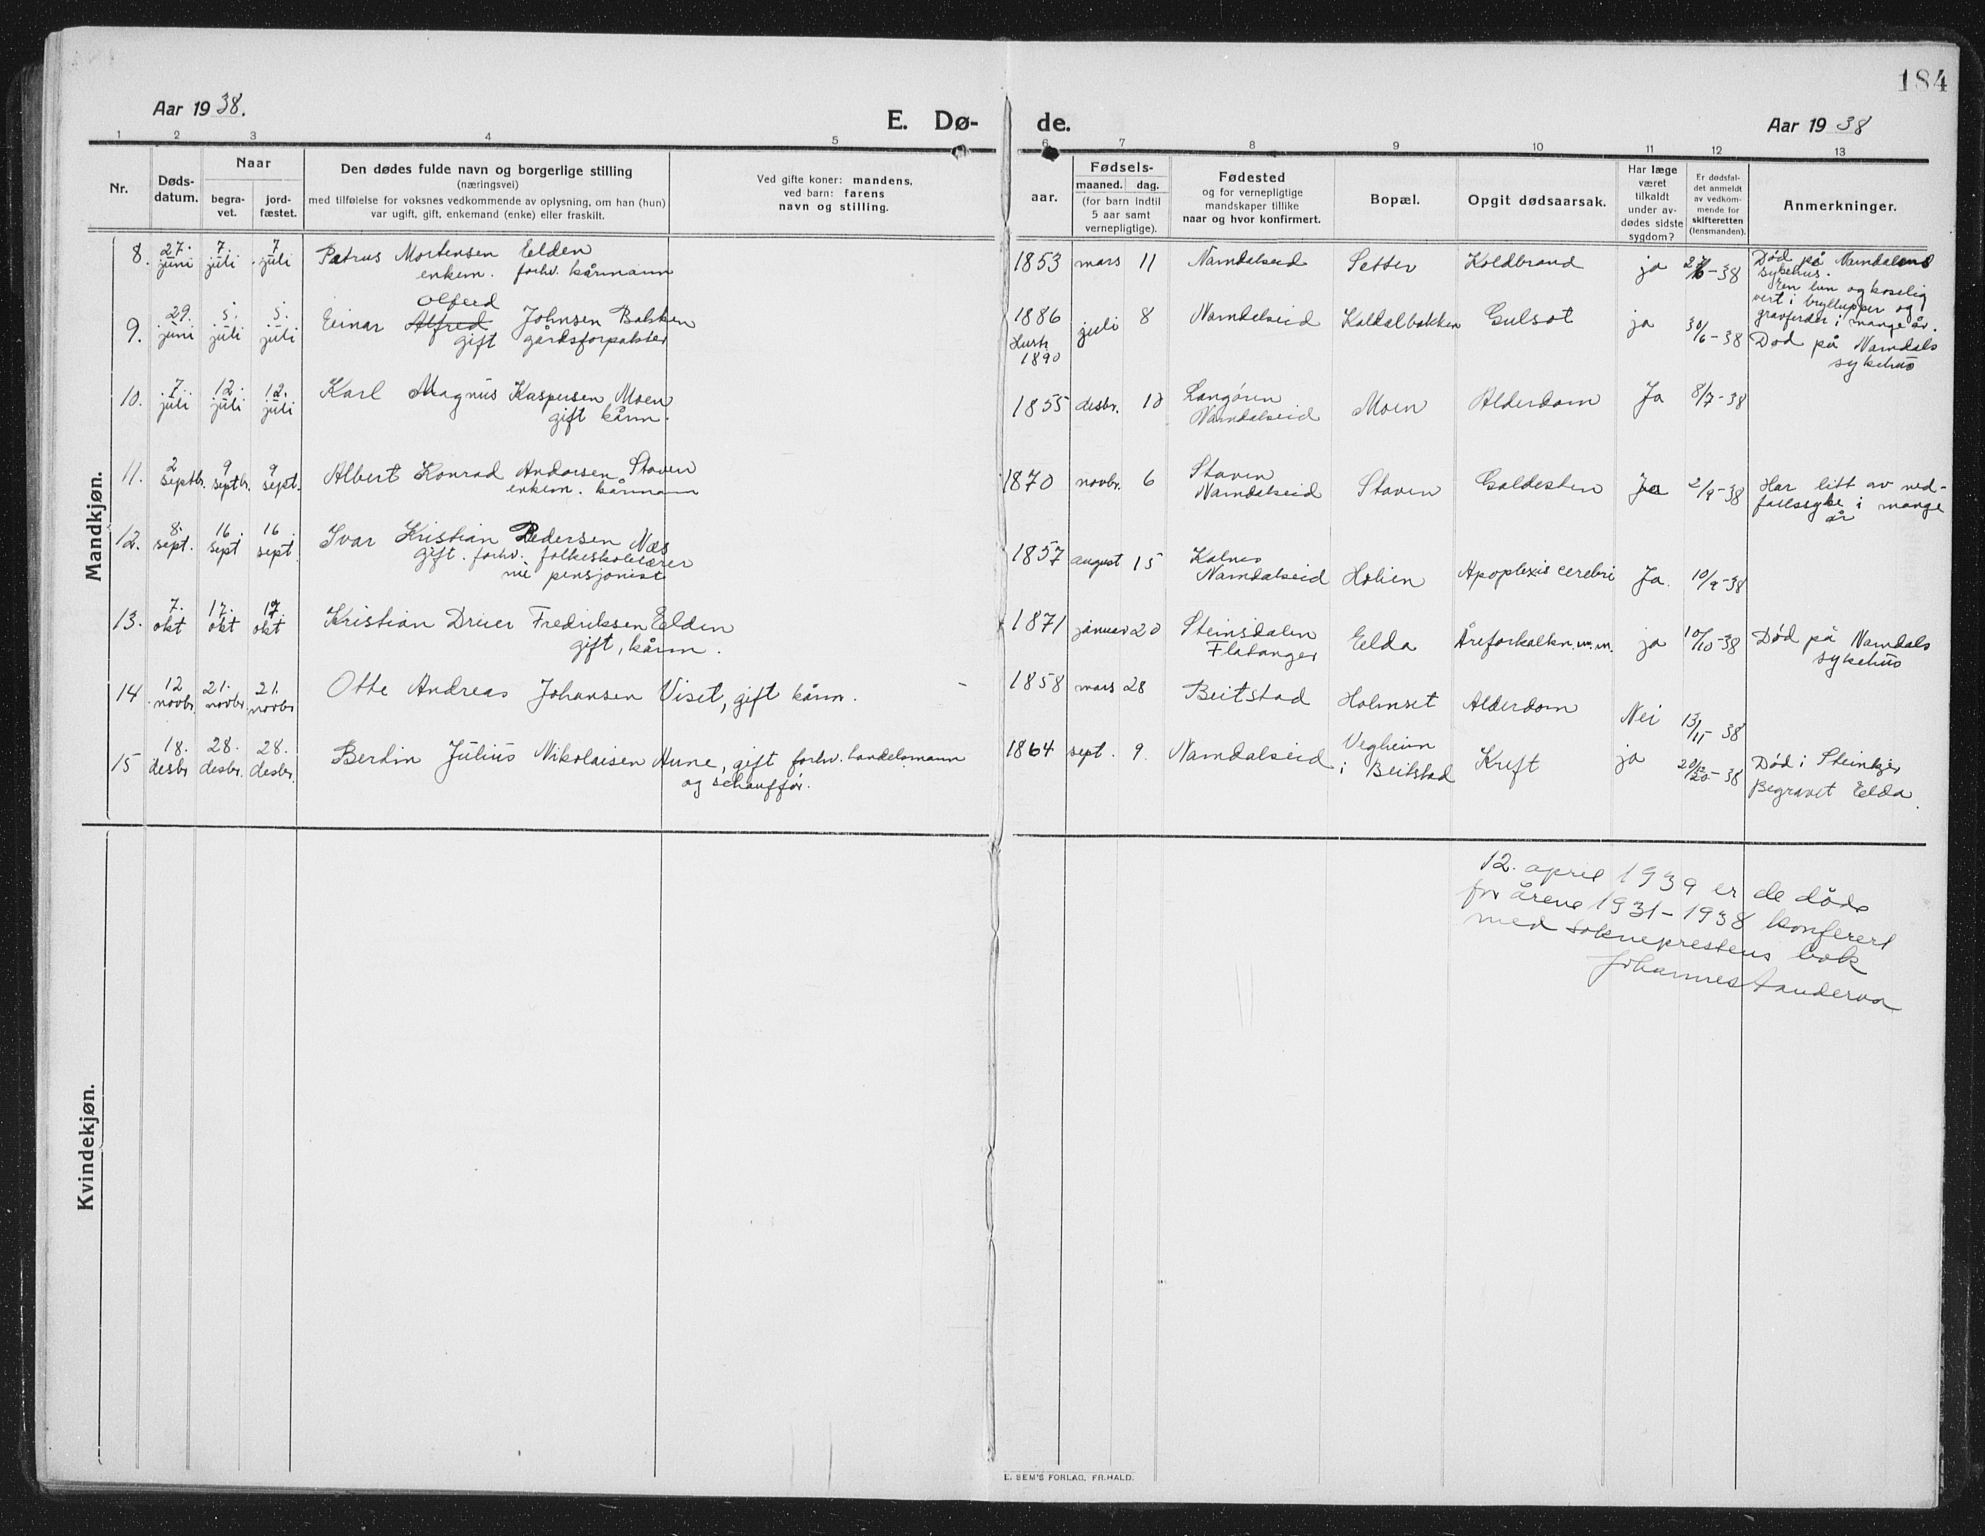 184
Aar 1938.
E. Dø-
de.
Aar 1938
1 2 3 4 5 6 7 8 9 10 11 12 13
Nr.
Døds-
datum.
Naar
begra-
vet.
jord-
fæstet.
Den dødes fulde navn og borgerlige stilling
(næringsvei)
med tilføielse for voksnes vedkommende av oplysning, om han (hun)
var ugift, gift, enkemand (enke) eller fraskilt.
Ved gifte koner: mandens,
ved barn: farens
navn og stilling.
aar.
Fødsels-
maaned. dag.
(for barn indtil
5 aar samt
vernepligtige).
Fødested
og for vernepligtige
mandskaper tillike
naar og hvor konfirmert.
Bopæl.
Opgit dødsaarsak.
Har læge
været
tilkaldt
under av-
dødes sidste
sygdom?
Er dødsfal-
det anmeldt
av vedkom-
mende for
skifteretten
(lensmanden).
Anmerkninger.
Mandkjøn.
8. 27. juni 7. juli 7 juli Petrus Mortensen Elden
enkem. forhv. kårmann
1853 mars 11 Namdalseid Setter Koldbrand ja 27/6-38 Død på Namdalens
sykehus.
En lun og koselig
vert i bryllupper og
gravferder i mange år.
9. 29. juni 5. juli 5. juli Einar Alfred Olferd Johnsen Bakken
gift gårdsforpakter
1886 juli 8 Namdalseid Kaldalbakken Gulsot ja 30/6-38 Død på Namdals
sykehus
1890
10. 7. juli 12. juli 12. juli Karl Magnus Kaspersen Moen
gift kårm.
1855 desbr. 10 Langøren
Namdalseid Moen Alderdom Ja 8/7-38
11. 2 septbr. 9 septbr. 9 sept. Albert Konrad Andorsen Staven
enkem. kårmann
1870 novbr. 6 Staven
Namdalseid Staven Galdesten Ja 2/9-38 Har litt av ned-
fallssyke i mange
år
12. 8. sept. 16. sept 16. sept. Ivar Kristian Pedersen Næs
gift. forhv. folkeskolelærer
nu pensjonist
1857 august 15 Kalnes
Namdalseid Holien Apoplexis cerebri Ja. 10/9-38
13. 7. okt 17. okt 17. okt Kristian Drier Fredriksen Elden
gift, kårm.
1871 januar 20 Steinsdalen
Flatanger Eelda Åreforkalkn. m.m. ja 10/10-38 Død på Namdals
sykehus
14 12 novbr. 21. novbr. 21. novbr Otte Andreas Johansen Viset, gift kårm. -
1858 mars 28 Beitstad Holmset Alderdom Nei 13/11-38
15 18. desbr 28. desbr. 28. desbr. Berdin Julius Nikolaisen Hune, gift forhv. handelsmann
og schauffør.
1864 sept. 9. Namdalseid Vegheim
i Beitstad Kreft ja 20/12-38 Død i Steinkjer
Begravet Eelda.
Kvindekjøn.
12. april 1939 er de døde
for årene 1931-1938 konferert
med sokneprestens bok
Johannes
E. SEM'S FORLAG, FR.HALD.